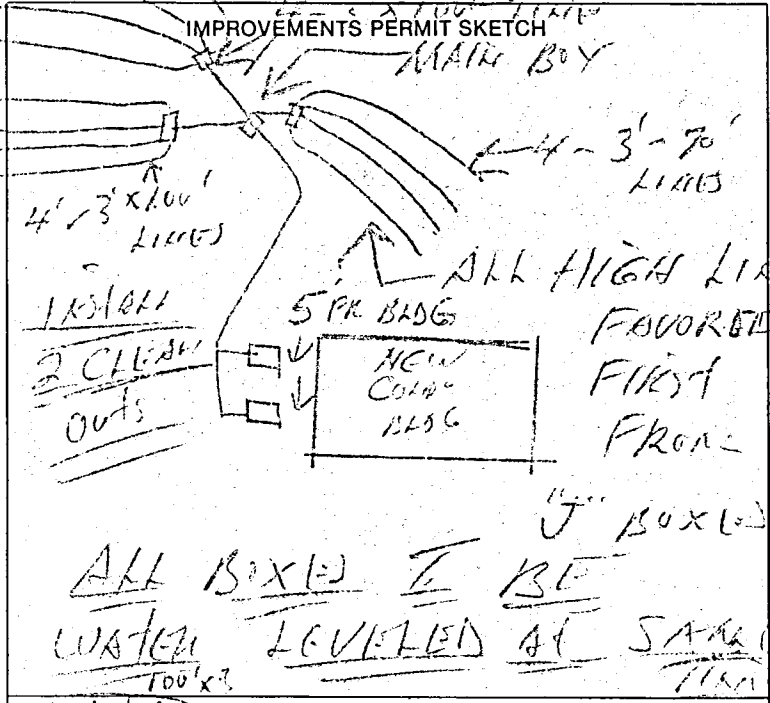 x 100' LINE
IMPROVEMENTS PERMIT SKETCH
MAIN BOX
4 - 3' - 70'
LINES
4' - 3' x 100'
LINES
ALL HIGH LIN
FAVORED
FIRST
FROM
"J" BOX(E)
INSTALL
2 CLEAN
OUTS
5' FR BLDG
NEW
BLDG
ALL BOX(E) BE
WATER LEVELED AT SAME
TIME
100' x 3